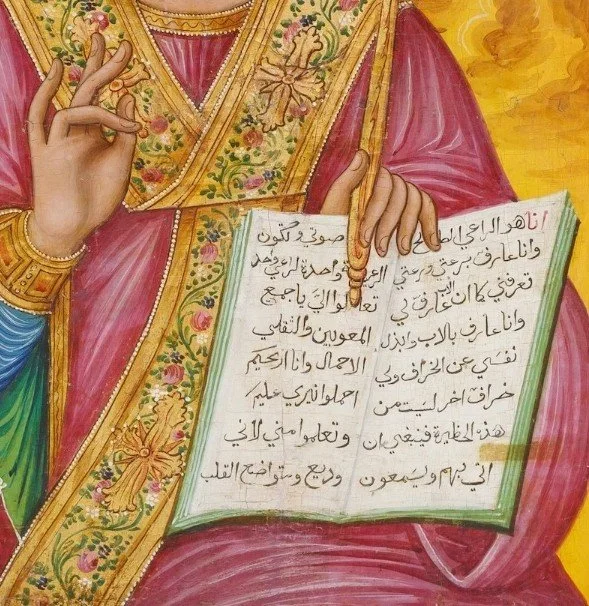 انا هو الراعي الصالح
وانا عارف برعتي ورعتي
تعرفني كما ان الاب عارف لي
وانا عارف بالاب وابذل
نفسي عن الخراف ولي
خراف اخر ليست من
هذه الحظيرة فينبغي ان
اتي بهم ويسمعون
صوتي وتكون
واحدة
تعالوا اليَّ يا جميع
المعوبين والثقلي
الاحمال وانا اريحكم
احملوا نيري عليكم
وتعلموا مني لاني
وديع ومتواضع القلب